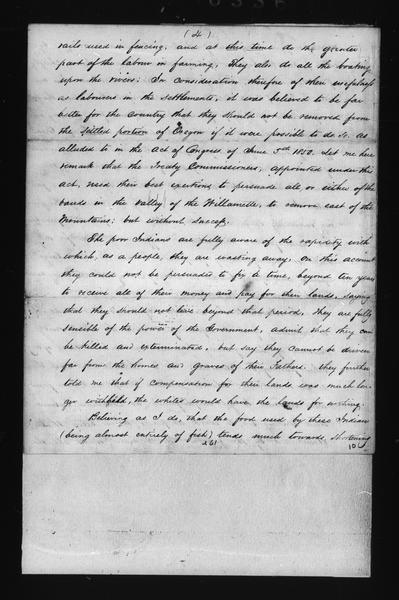 (4)
rails used in fencing, and at this time do the greater
part of the labour in farming, They also do all the boating
upon the rivers. In consideration therefore of their usefulness
as labourers in the settlements, it was believed to be far
better for the Country that they should not be removed from
the settled portion of Oregon if it were possible to do so. as
alluded to in the Act of Congress of June 5th 1850. Let me here
remark that the Treaty Commissioners, appointed under this
act, used their best exertions to persuade all or either of the
bands in the valley of the Willamette, to remove east of the
Mountains; but without success.
The poor Indians are fully aware of the rapidity with
which, as a people, they are wasting away. On this account
they could not be persuaded to fix a time, beyond ten years
to receive all of their money and pay for their lands, saying
that they should not live beyond that period, They are fully
sensible of the power of the Government, admit that they can
be killed and exterminated, but say they cannot be driven
far from the homes and graves of their Fathers. They further
told me that if compensation for their lands was much lon-
ger withheld, the whites would have the lands for nothing.
Believing as I do, that the food used by these Indians
(being almost entirely of fish) tends much towards shortening
261
10